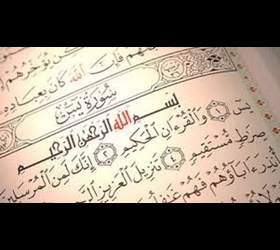 يُؤَخِّرُهُمْ
فَإِنَّ ٱللَّهَ كَانَ بِعِبَادِهِۦ
سُورَةُ يسٓ
بِسْمِ ٱللَّهِ ٱلرَّحْمَٰنِ ٱلرَّحِيمِ
يسٓ ١ وَٱلْقُرْءَانِ ٱلْحَكِيمِ ٢ إِنَّكَ لَمِنَ ٱلْمُرْسَلِينَ
صِرَٰطٍ مُّسْتَقِيمٍ ٤ تَنزِيلَ ٱلْعَزِيزِ ٱلرَّحِيمِ
ءَابَآؤُهُمْ فَهُمْ